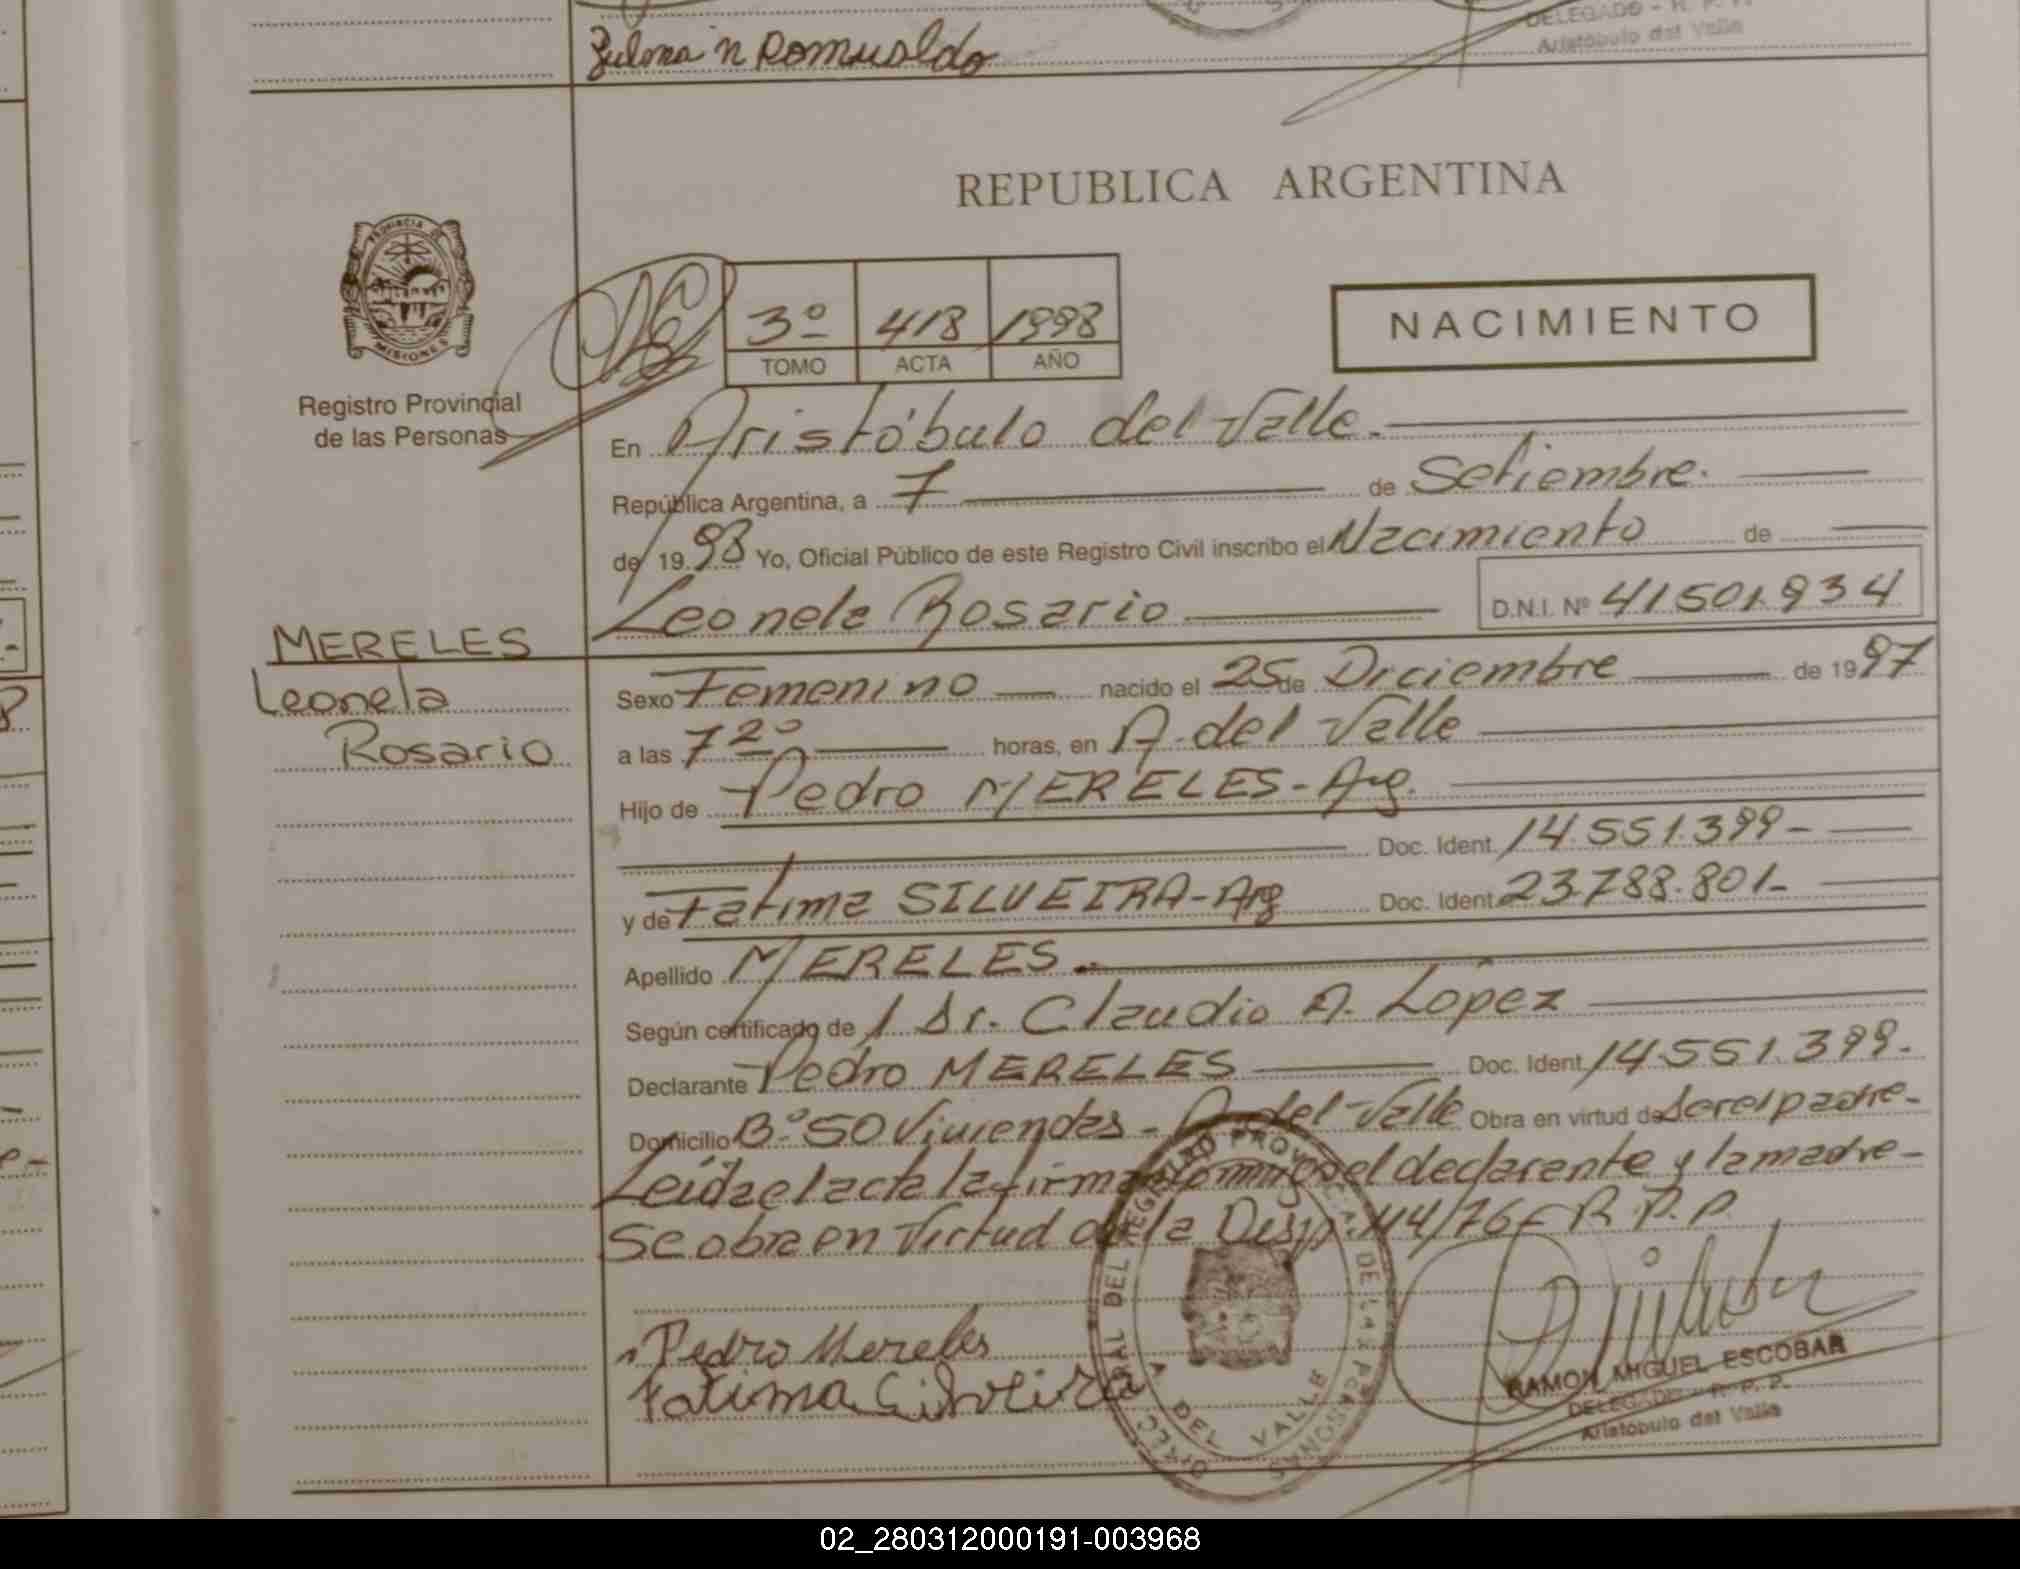 Zulma N Romualdo
DELEGADO - R. P. P.
Aristóbulo del Valle
REPUBLICA ARGENTINA
PROVINCIA DE
MISIONES
Registro Provincial
de las Personas
3º 418 1998
TOMO ACTA AÑO
NACIMIENTO
En Aristóbulo del Valle.
República Argentina, a 7 de Setiembre.
de 1998 Yo, Oficial Público de este Registro Civil inscribo el Nacimiento de
Leonela Rosario D.N.I. Nº 41501.934
MERELES
Leonela
Rosario
Sexo Femenino nacido el 25 de Diciembre de 1997
a las 7 20 horas, en A. del Valle
Hijo de Pedro MERELES - Arg.
Doc. Ident. 14.551.399-
y de Fatima SILVEIRA - Arg Doc. Ident. 23.788.801-
Apellido MERELES.-
Según certificado de l Dr. Claudio A. Lopez
Declarante Pedro MERELES Doc. Ident. 14.551.399.
Domicilio Bº 50 Viviendas - A. del Valle Obra en virtud de ser el padre-
Leída el acta la firman conmigo el declarante y la madre-
Se obra en Virtud de la Disp. 114/76 - R.P.P.
Pedro Mereles
Fatima Cilveira
DIRECC GRAL DEL REGISTRO PROVINCIAL DE LAS PERSONAS
A DEL VALLE
RAMON MIGUEL ESCOBAR
DELEGADO - R. P. P.
Aristóbulo del Valle
02_280312000191-003968